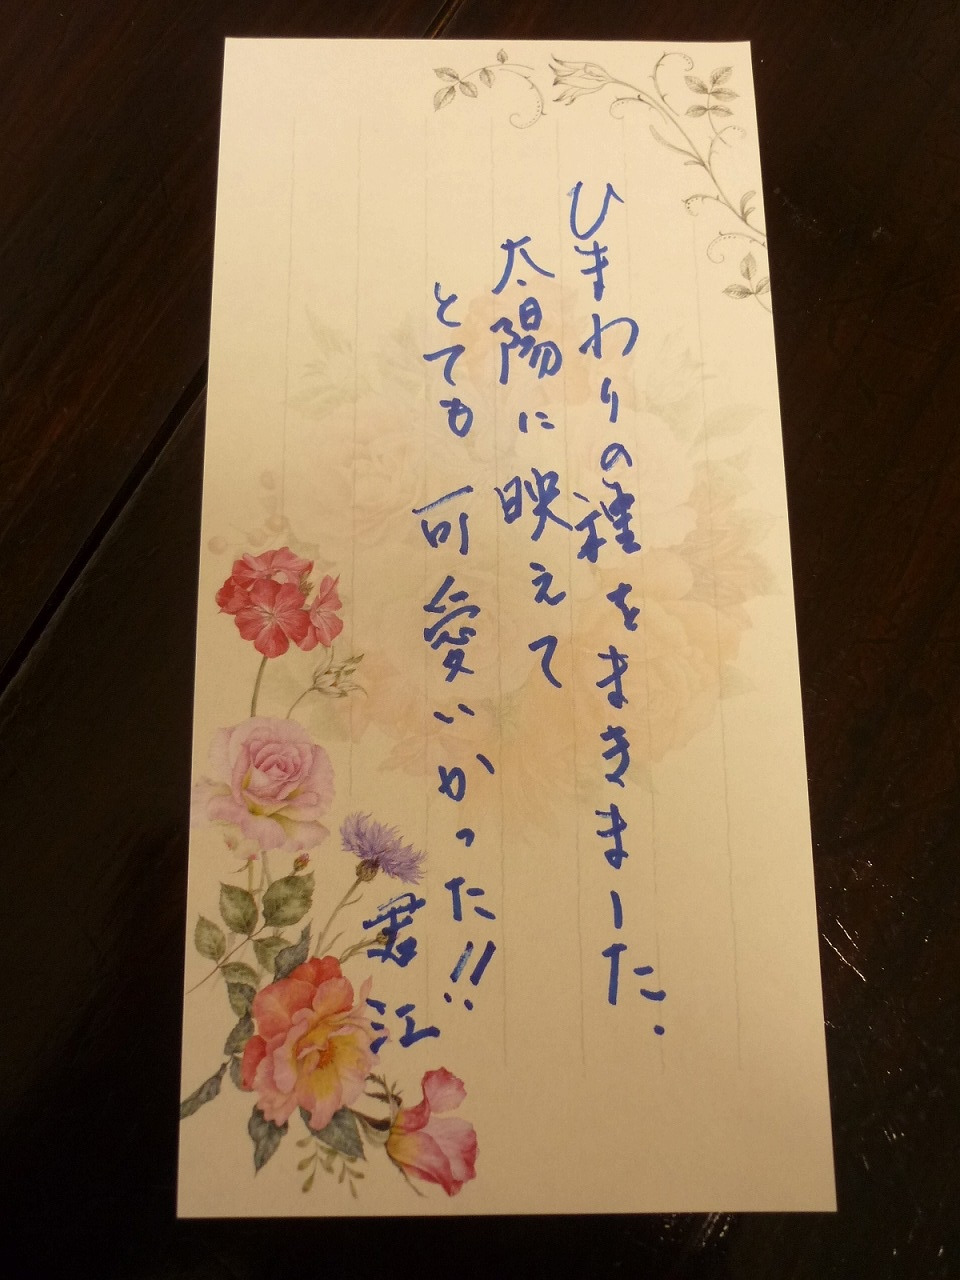 ひまわりの種をまきました.
太陽に映えて
とても可愛いかった!!
君江